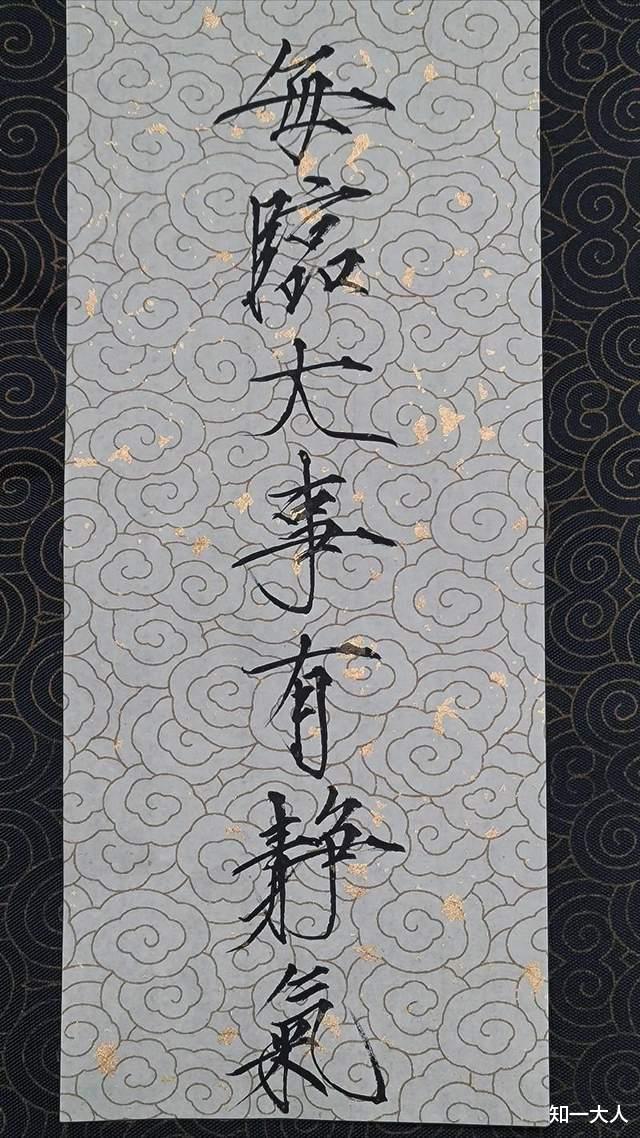 每臨大事有静氣
知一大人